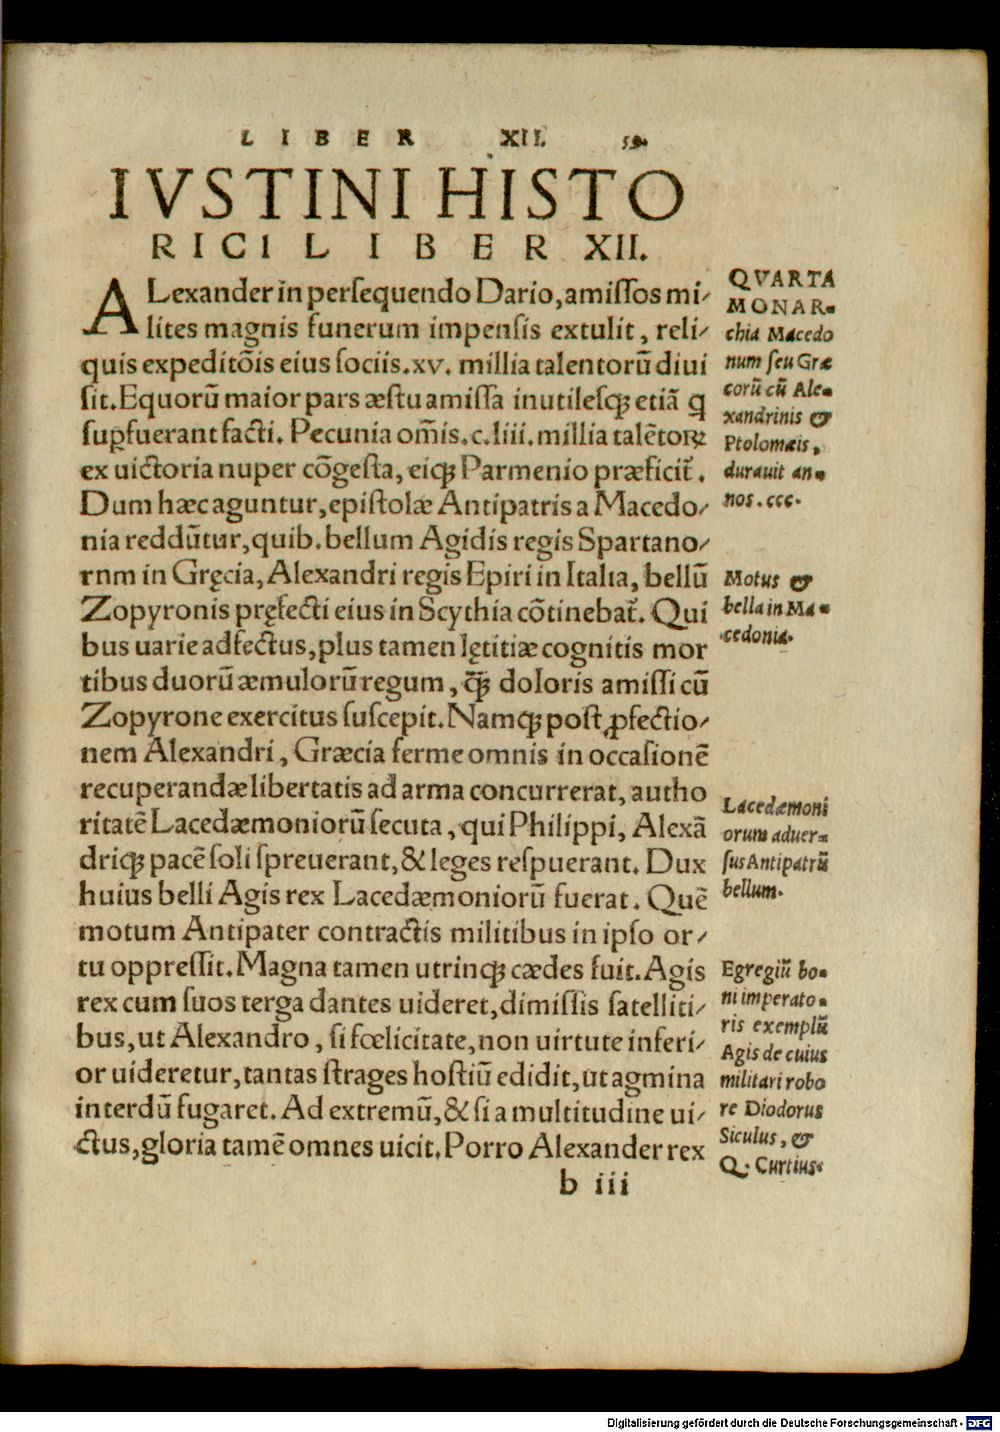 LIBER XII. 59.
IVSTINI HISTO
RICI LIBER XII.
ALexander in persequendo Dario, amissos mi/
lites magnis funerum impensis extulit, reli/
quis expeditõis eius sociis.xv. millia talentorũ diui
sit. Equorũ maior pars æstu amissa inutilesq; etiã q
suꝑfuerant facti. Pecunia om̃is.c.liii. millia talẽtoꝝ
ex uictoria nuper cõgesta, eiq; Parmenio præficit̃.
Dum hæc aguntur, epistolæ Antipatris a Macedo/
nia reddũtur, quib. bellum Agidis regis Spartano/
rnm in Gręcia, Alexandri regis Epiri in Italia, bellũ
Zopyronis pręfecti eius in Scythia cõtinebat̃. Qui
bus uarie adfectus, plus tamen lętitiæ cognitis mor
tibus duorũ æmulorũ regum, q̃; doloris amissi cũ
Zopyrone exercitus suscepit. Namq; post ꝓfectio/
nem Alexandri, Græcia ferme omnis in occasionẽ
recuperandæ libertatis ad arma concurrerat, autho
ritatẽ Lacedæmoniorũ secuta, qui Philippi, Alexã
driq; pacẽ soli spreuerant, & leges respuerant. Dux
huius belli Agis rex Lacedæmoniorũ fuerat. Quẽ
motum Antipater contractis militibus in ipso or/
tu oppressit. Magna tamen utrinq; cædes fuit. Agis
rex cum suos terga dantes uideret, dimissis satelliti/
bus, ut Alexandro, si fœlicitate, non uirtute inferi/
or uideretur, tantas strages hostiũ edidit, ut agmina
interdũ fugaret. Ad extremũ, & si a multitudine ui/
ctus, gloria tamẽ omnes uicit. Porro Alexander rex
b iii
QVARTA
MONAR-
chia Macedo
num seu Græ
corũ cũ Ale-
xandrinis &
Ptolomæis,
durauit an-
nos.ccc.
Motus &
bella in Ma-
cedonia.
Lacedæmoni
orum aduer-
sus Antipatrũ
bellum.
Egregiũ bo-
ni imperato-
ris exemplũ
Agis de cuius
militari robo
re Diodorus
Siculus, &
Q. Curtius.
Digitalisierung gefördert durch die Deutsche Forschungsgemeinschaft - DFG